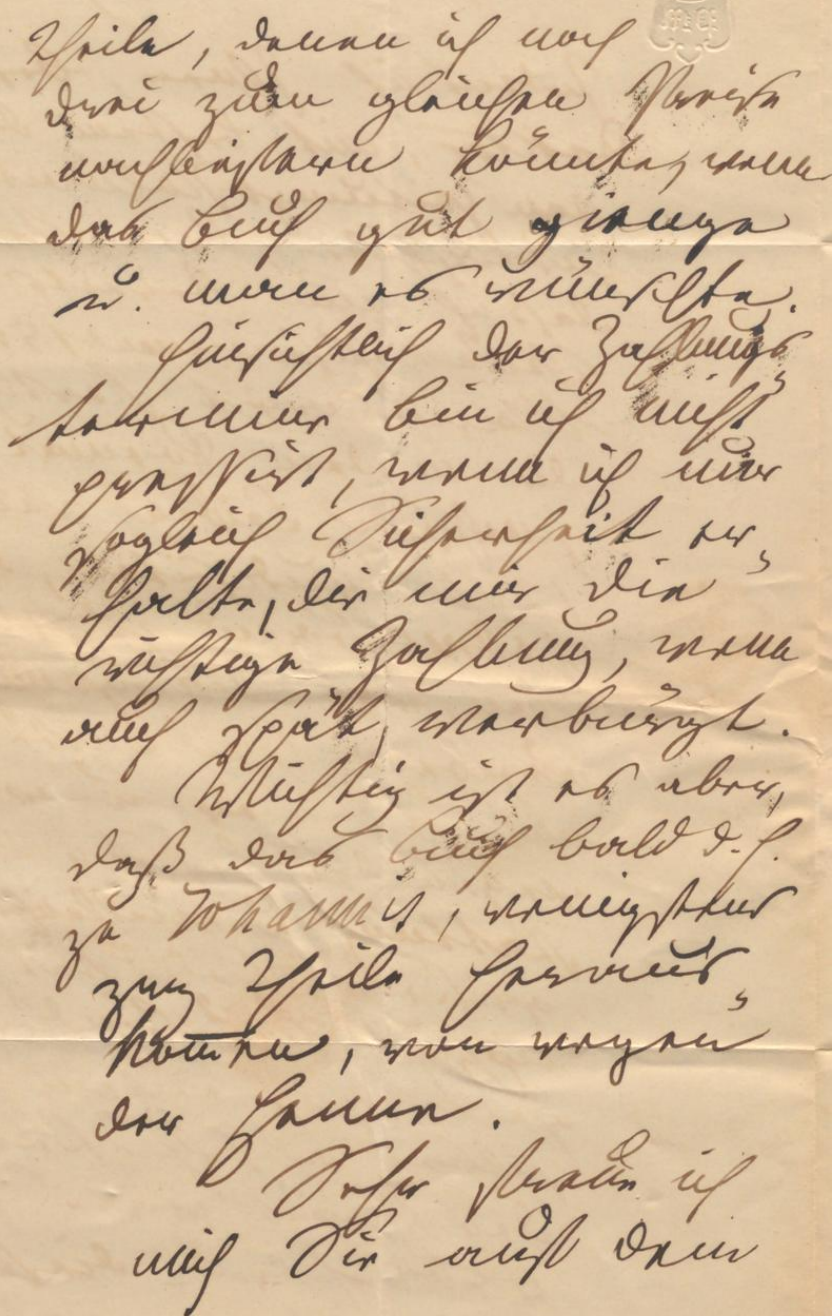 Theile, denen ich noch
drei zum gleichen Preise
nachliefern könnte, wenn
das Buch gut gienge
u. man es wünschte.
Hinsichtlich der Zahlungs
termine bin ich nicht
pressirt, wenn ich nur
sogleich Sicherheit er-
halte, die mir die
richtige Zahlung, wenn
auch spät, verbürgt.
Wichtig ist es aber,
daß das Buch bald d. h.
zu Johannis, wenigstens
zum Theile heraus-
kom̄en, von wegen
der Henne.
Sehr freue ich
mich Sie auf dem